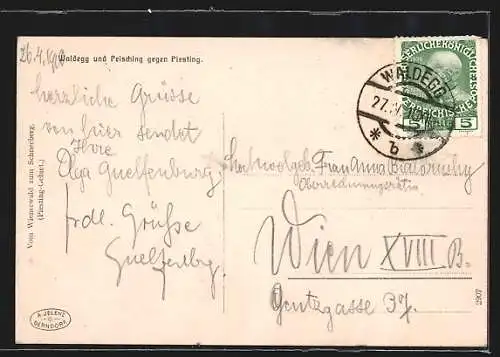 26.4.1910
Waldegg und Peisching gegen Piesting.
herzliche Grüsse
von hier sendet
Ihre
Olga Guelfenburg
frdl. Grüße
Guelfenbg.
Vom Wienerwald zum Schneeberg.
(Piesting-Lehart.)
A. JELENZ
BERNDORF
KAISERLICHEKÖNIGLICHE
5 HELLER 5
WALDEGG
27.IV
* b *
Hochwolgeb. Frau Anna
Oberrechnungsrätin
Wien XVIII B.
Gentzgasse 37.
2907